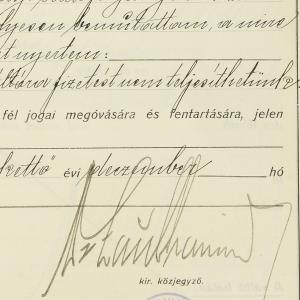 lyesen bemutattam, a mire
t nyertem:
fizetést nem teljesíthetünk
fél jogai megóvására és fentartására, jelen
kettő évi deczember hó
kir. közjegyző.